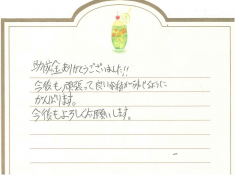 助成金ありがとうございました!!
今後も頑張って良い成績がでるように
がんばります。
今後もよろしくお願いします。